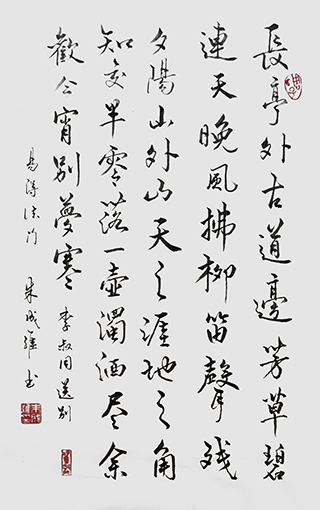 長亭外古道邊芳草碧
連天晚風拂柳笛聲残
夕陽山外山天之涯地之角
知交半零落一壺濁酒尽余
歡今宵别夢寒
李叔同送别
书